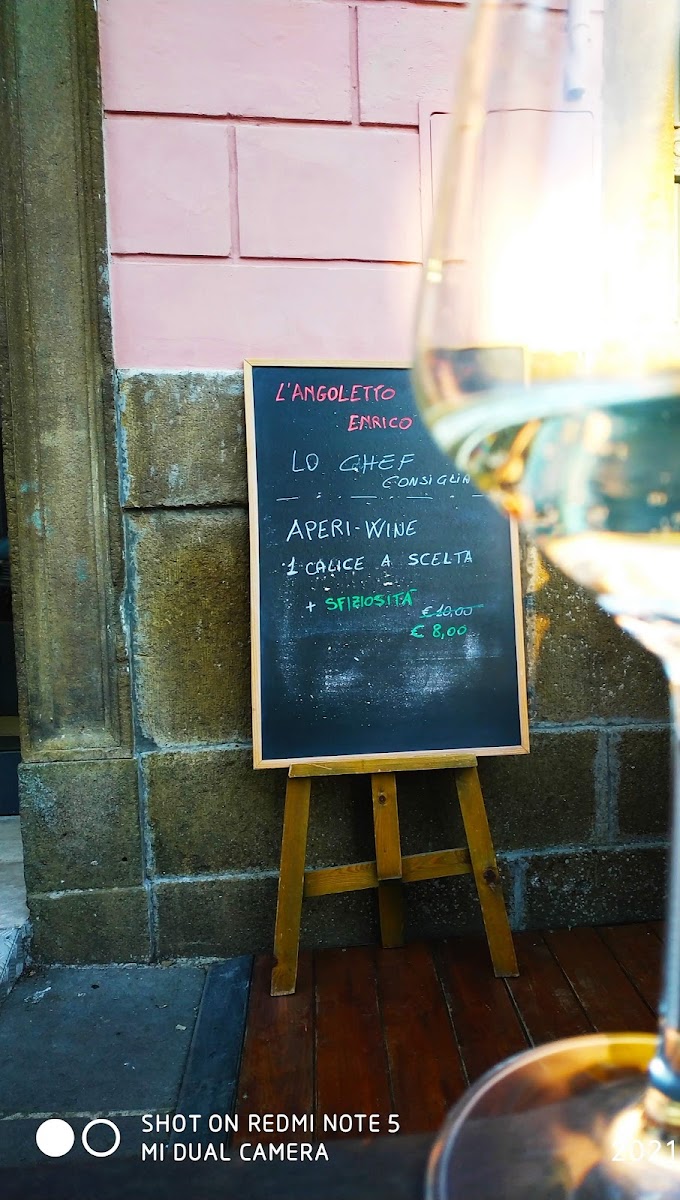 L'ANGOLETTO
ENRICO
LO CHEF
CONSIGLIA
APERI-WINE
1 CALICE A SCELTA
+ SFIZIOSITÀ
€ 10,00
€ 8,00
SHOT ON REDMI NOTE 5
MI DUAL CAMERA
2021